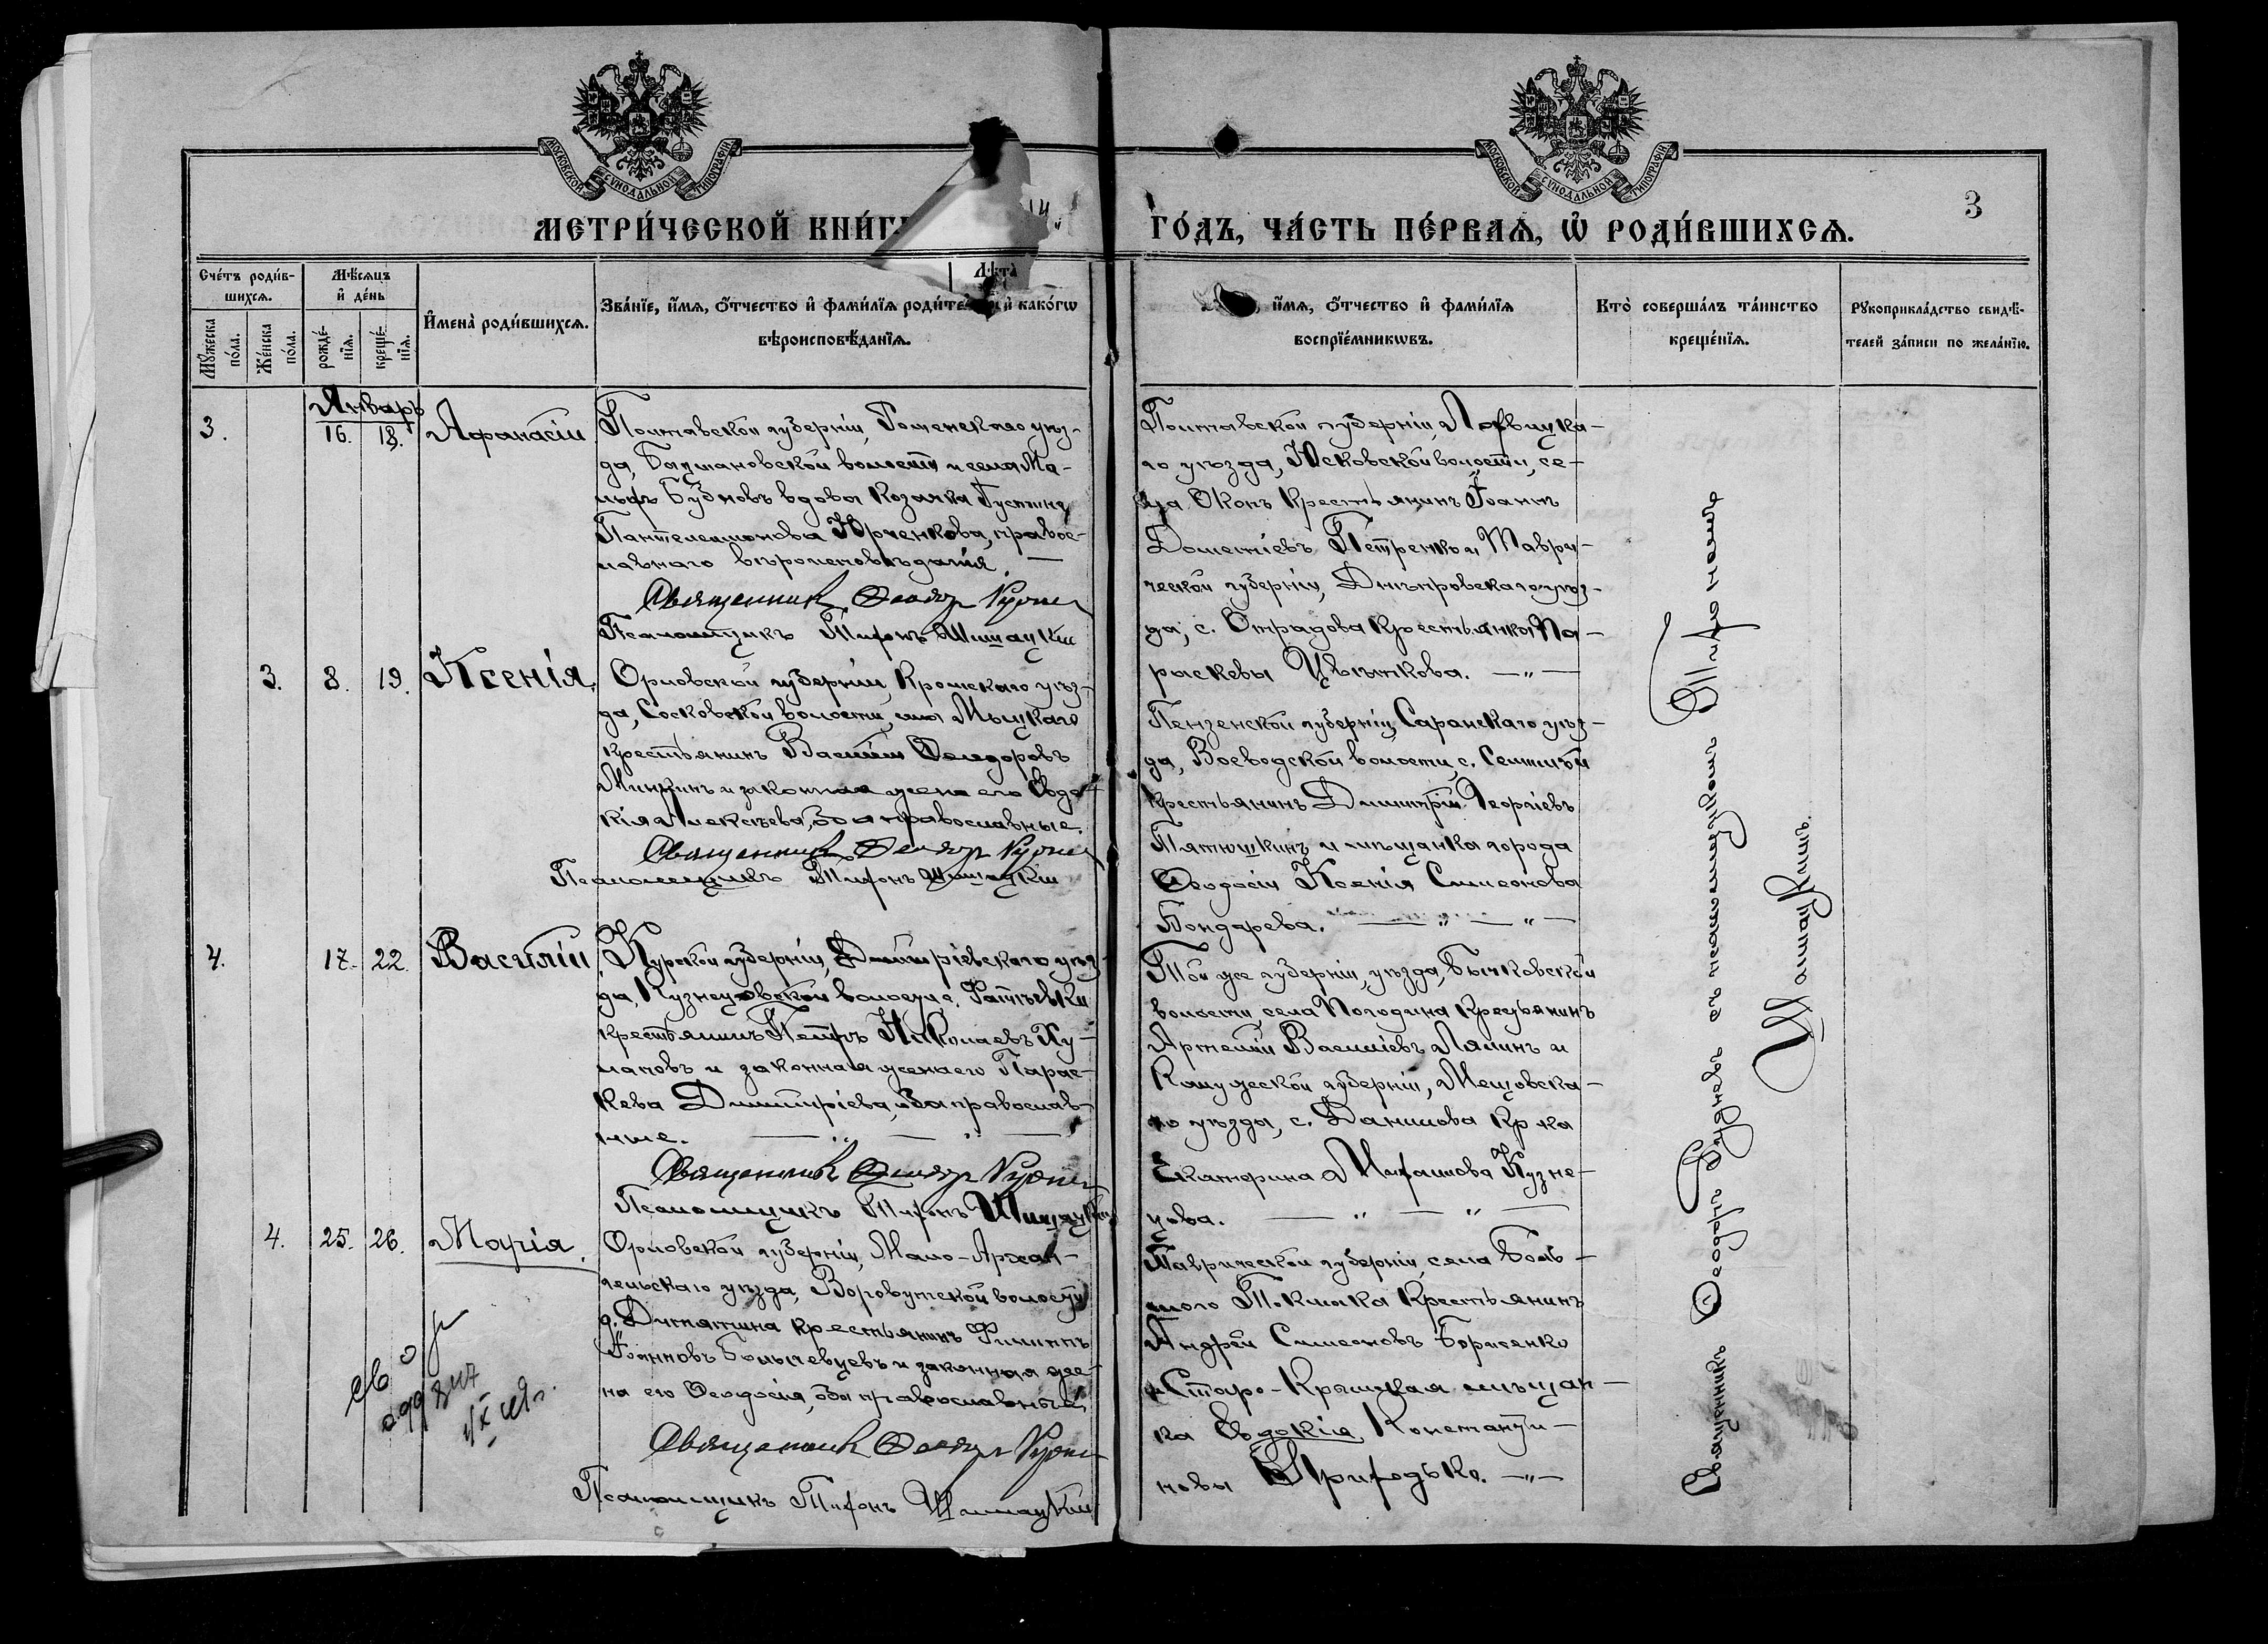 МОСКОВСКОЙ СѴНОДАЛЬНОЙ ТИПОГРАФІИ
МОСКОВСКОЙ СѴНОДАЛЬНОЙ ТИПОГРАФІИ
3
МЕТРИ́ЧЕСКОЙ КНИ́Г
ГО́ДЪ, ЧА́СТЬ ПЕ́РВАѦ, Ѡ҆ РОДИ́ВШИХСѦ.
Сче́тъ роди́в-
шихсѧ.
Мꙋ́жеска по́ла.
Же́нска по́ла.
Мѣ́сѧцъ
и҆ де́нь
рожде́-
нїѧ.
креще́-
нїѧ.
И҆мена̀ роди́вшихсѧ.
Зва́нїе, и҆́мѧ, ѻ҆́тчество и҆ фами́лїѧ роди́те и҆ како́гѡ
вѣроисповѣ́данїѧ.
Лѣта̀
и҆́мѧ, ѻ҆́тчество и҆ фами́лїѧ
воспрїе́мникѡвъ.
Кто̀ соверша́лъ та́инство
креще́нїѧ.
Рꙋкоприкла́дство свидѣ́-
телей за́писи по жела́нїю.
Январь
3.
16. 18.
Афанасій
Полтавской губерніи, Роменскаго уѣз-
да, Бацмановской волости и села Ма-
лыхъ Будковъ вдовы козачка Густина
Пантелеимонова Юрченкова, правос-
лавнаго вѣроисповѣданія. —
Священникъ Ѳеодоръ
Псаломщикъ Тихонъ Шишацкій
Полтавской губерніи, Лохвицка-
го уѣзда, Юсковской волости, се-
ла Окопъ крестьянинъ Іоаннъ
Дометіевъ Петренко и Таври-
ческой губерніи, Днѣпровскаго уѣз-
да, с. Отрадова крестьянка Па-
раскевы Цвѣткова. — „ —
3. 8. 19.
Ксенія.
Орловской губерніи, Кромскаго уѣз-
да, Сосковской волости, села Мыцкаго
крестьянинъ Василій Ѳеодоровъ
и законная жена его Евдо-
кія Алексѣева, оба православные.
Священникъ Ѳеодоръ
Псаломщикъ Тихонъ Шишацкій
Пензенской губерніи, Саранскаго уѣз-
да, Воеводской волости, с.
крестьянинъ Димитрій Георгіевъ
Пятюшкинъ и мѣщанка города
Ѳеодосіи Ксенія Симеонова
Бондарева. — „ — „ —
4. 17. 22.
Василій
Курской губерніи, Дмитріевскаго уѣз-
да, Кузнецовской волости, с. Фатѣевки
крестьянинъ Петръ Николаевъ Ху-
лаповъ и законная жена его Парас-
кева Димитріева, оба православ-
ные. — „ — „ —
Священникъ Ѳеодоръ
Псаломщикъ Тихонъ Шишацкій
Той же губерніи, уѣзда, Бычковской
волости, села Погодина крестьянинъ
Артемій Васильевъ Лялинъ и
Калужской губерніи, Мещовска-
го уѣзда, с. Данилова кр-ка
Екатерина Михаилова Кузне-
цова. — „ — „ —
4. 25. 26.
Марія.
Орловской губерніи, Мало-Архан-
гельскаго уѣзда, волости,
д. крестьянинъ Филиппъ
Іоанновъ и законная же-
на его Ѳеодосія, оба православные.
Священникъ Ѳеодоръ
Псаломщикъ Тихонъ Шишацкій
Таврической губерніи, села Боль-
шого Токмака крестьянинъ
Андрей Симеоновъ Борисенко
и Старо-Крымская мѣщан-
ка Евдокіе Константи-
новы Приходько. — „ —
Священникъ Ѳеодоръ съ псаломщикомъ Тихономъ
Шишацкимъ.